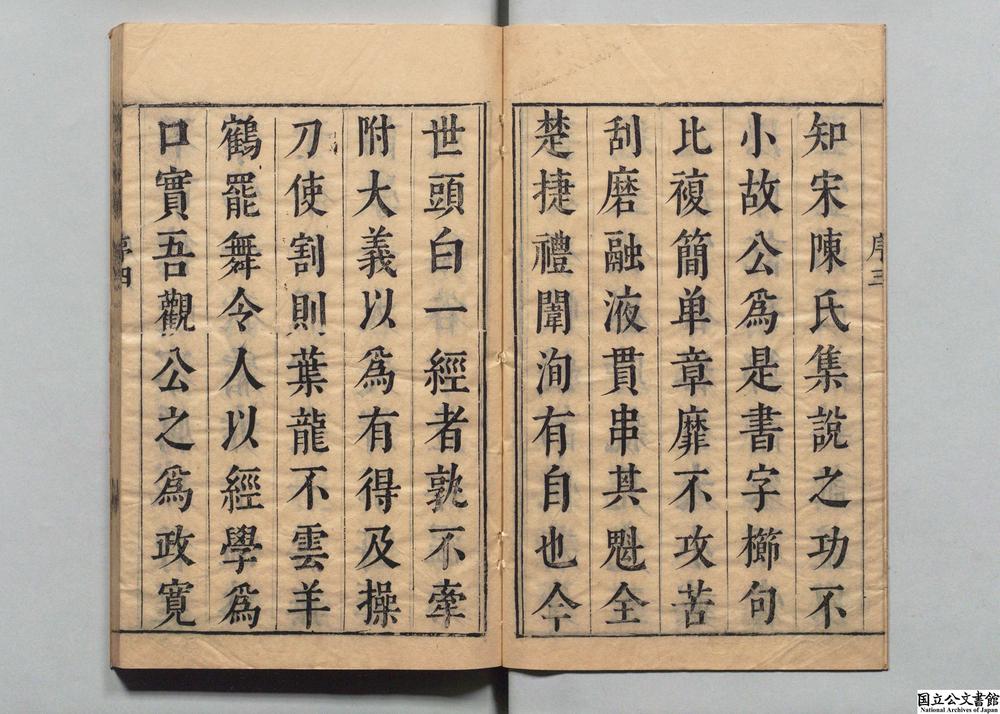 知宋陳氏集說之功不
小故公爲是書字櫛句
比複簡单章靡不攻苦
刮磨融液貫串其魁全
楚捷禮闈洵有自也今
序三
世頭白一經者孰不牽
附大義以爲有得及操
刀使割則葉龍不雲羊
鶴罷舞令人以經學爲
口實吾觀公之爲政寬
序四
国立公文書館
National Archives of Japan